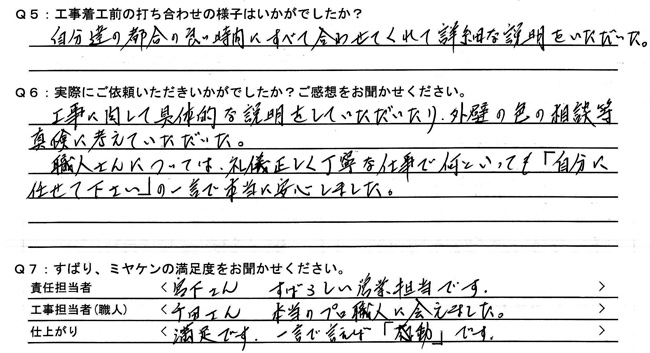 Q5：工事着工前の打ち合わせの様子はいかがでしたか？
自分達の都合の良い時間にすべて合わせてくれて詳細な説明をいただいた。
Q6：実際にご依頼いただきいかがでしたか？ご感想をお聞かせください。
工事に関して具体的な説明をしていただいたり、外壁の色の相談等
真険に考えていただいた。
職人さんについては、礼儀正しく丁寧な仕事で何といっても「自分に
任せて下さい」の一言で本当に安心しました。
Q7：ずばり、ミヤケンの満足度をお聞かせください。
責任担当者 ＜宮下さん すばらしい営業担当です. ＞
工事担当者(職人) ＜千田さん 本当のプロ職人に会えました。 ＞
仕上がり ＜満足です. 一言で言えば「感動」です. ＞